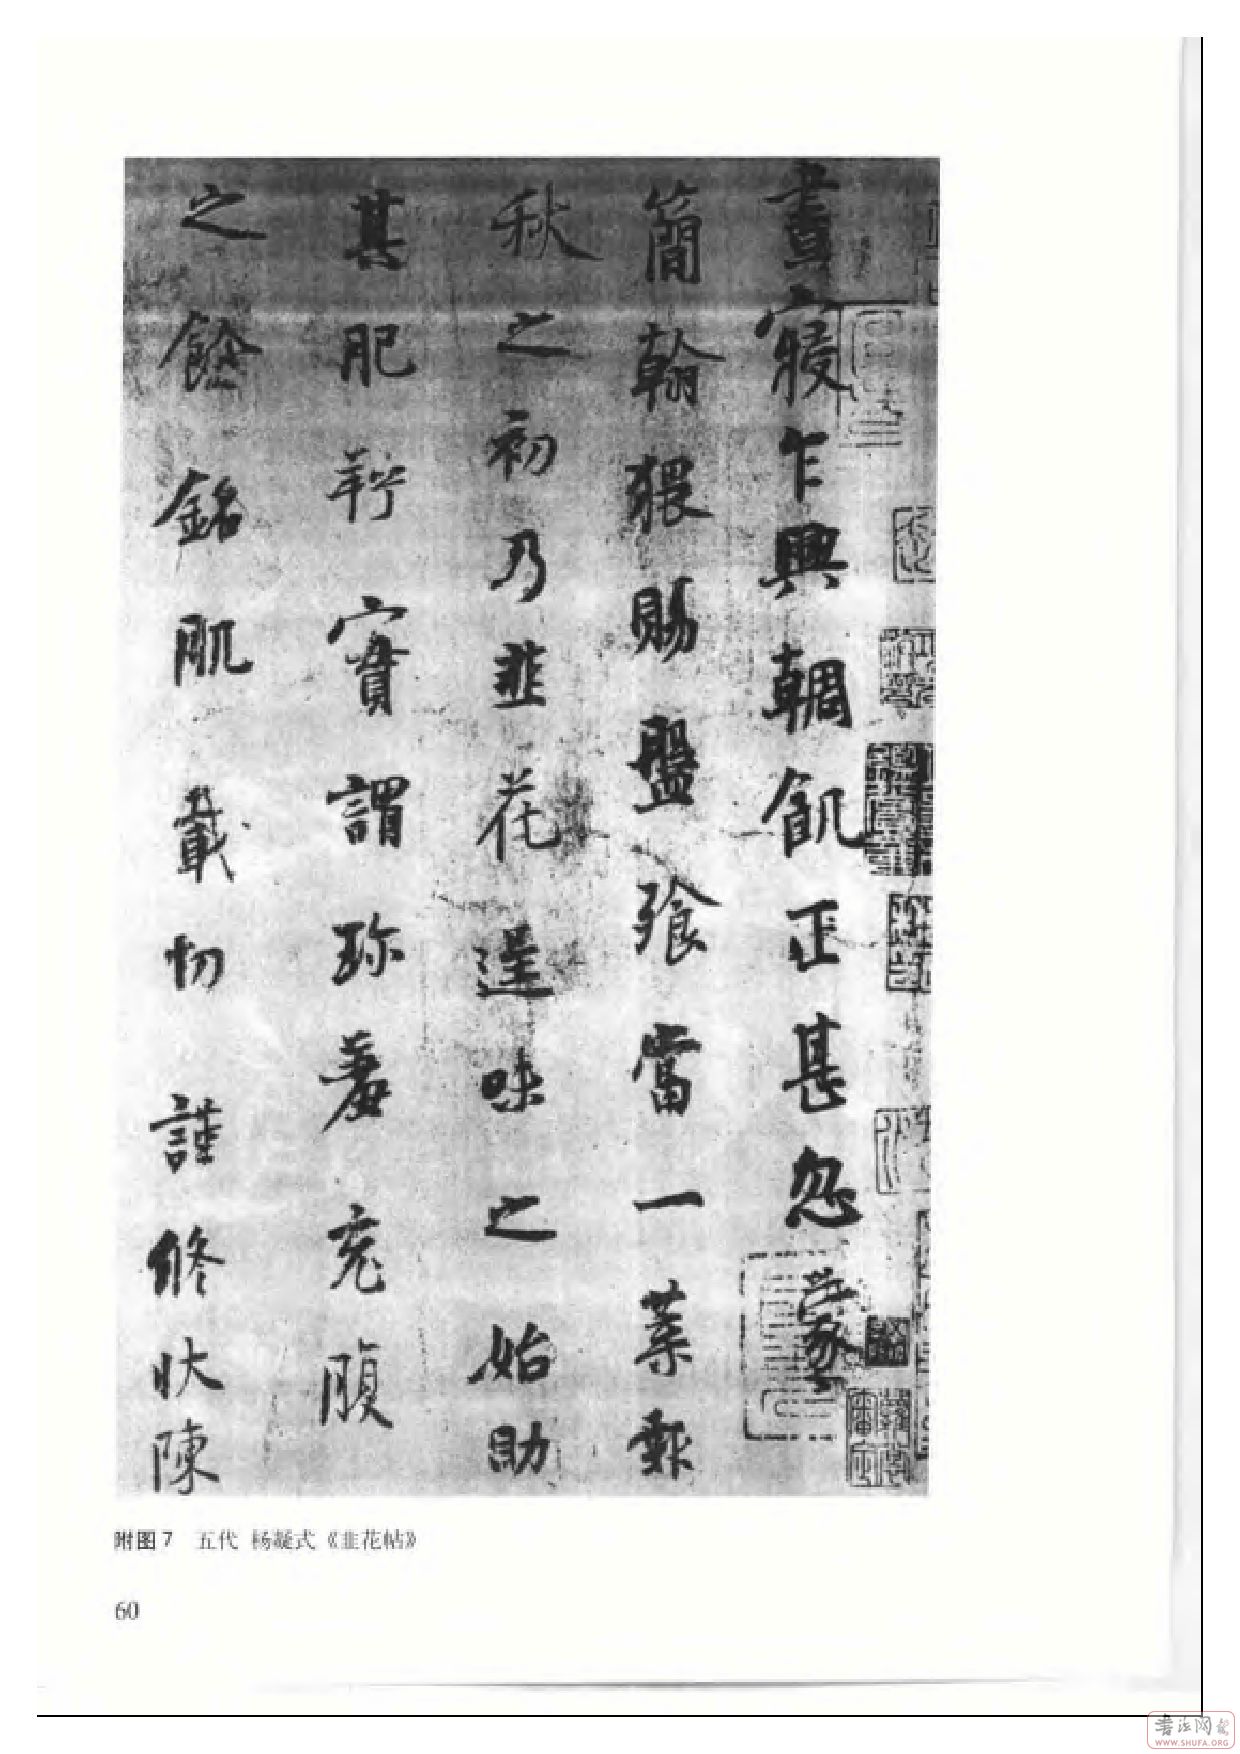 晝寢乍興輖飢正甚忽蒙
簡翰猥賜盤飱當一葉報
秋之初乃韭花逞味之始助
其肥羜實謂珍羞充腹
之餘銘肌載切謹修狀陳
附图7 五代 杨凝式《韭花帖》
60
书法网
WWW.SHUFA.ORG